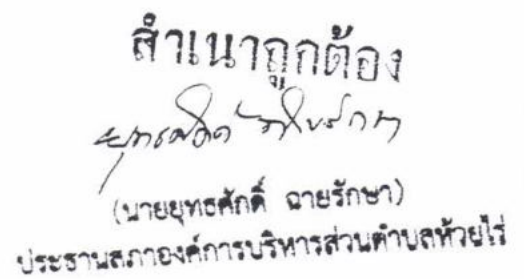 สำเนาถูกต้อง
(นายยุทธศักดิ์ ฉายรักษา)
ประธานสภาองค์การบริหารส่วนตำบลห้วยไร่